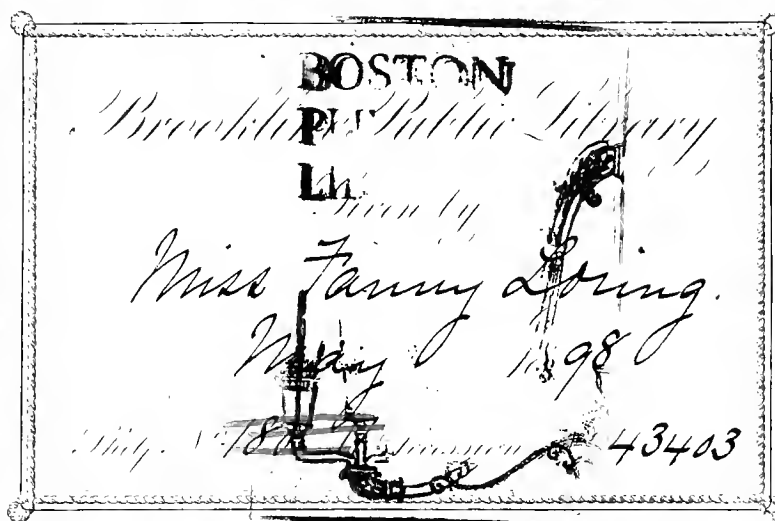 BOSTON
Brookline Public Library
Given by
Miss Fanny Loring.
May 1898
43403